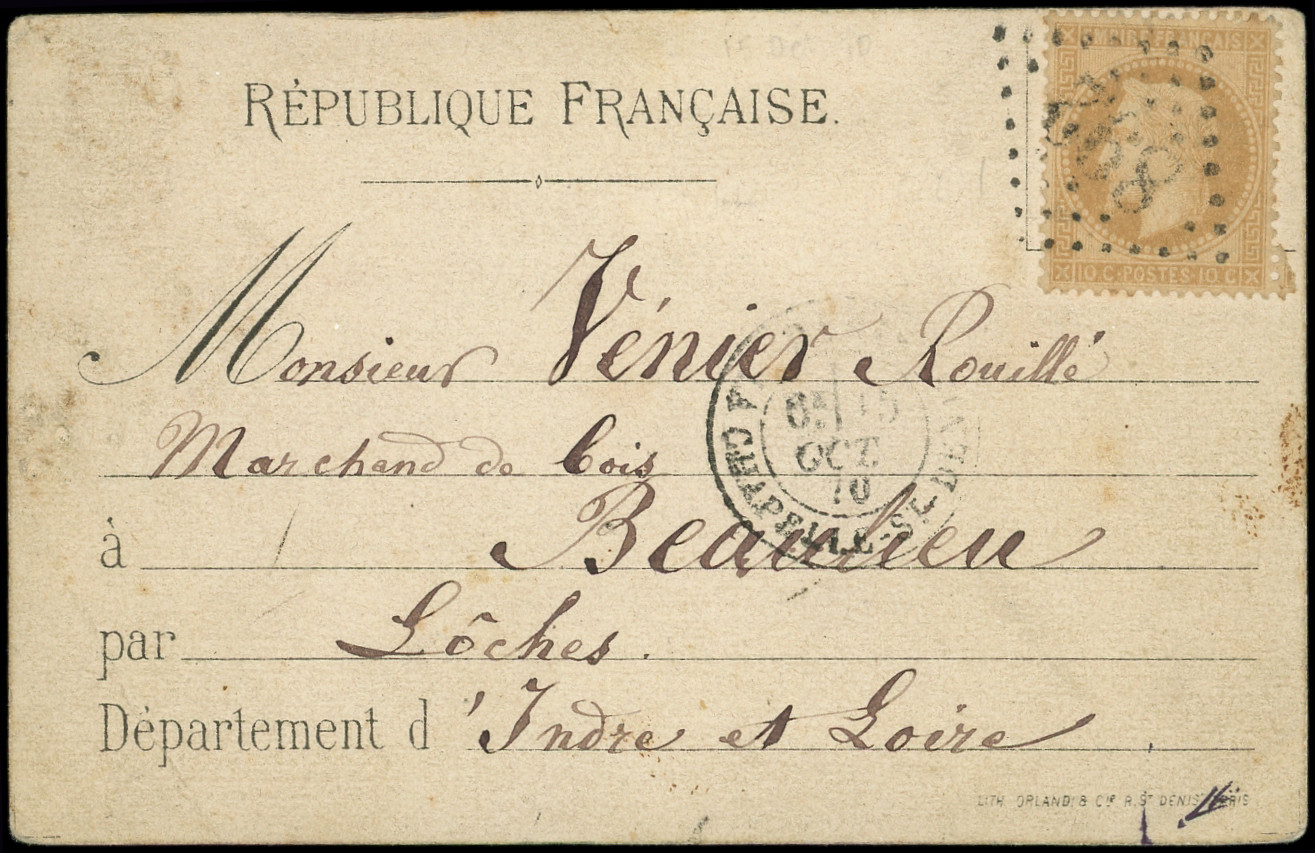 RÉPUBLIQUE FRANÇAISE.
FRANÇAIS
10 C · POSTES 10 C
Monsieur Vénier Rouillé
Marchand de bois
à Beaulieu
par Lôches.
Département d'Indre et Loire
OCT.
70
LITH. ORLANDI & Cie R. St DENIS PARIS